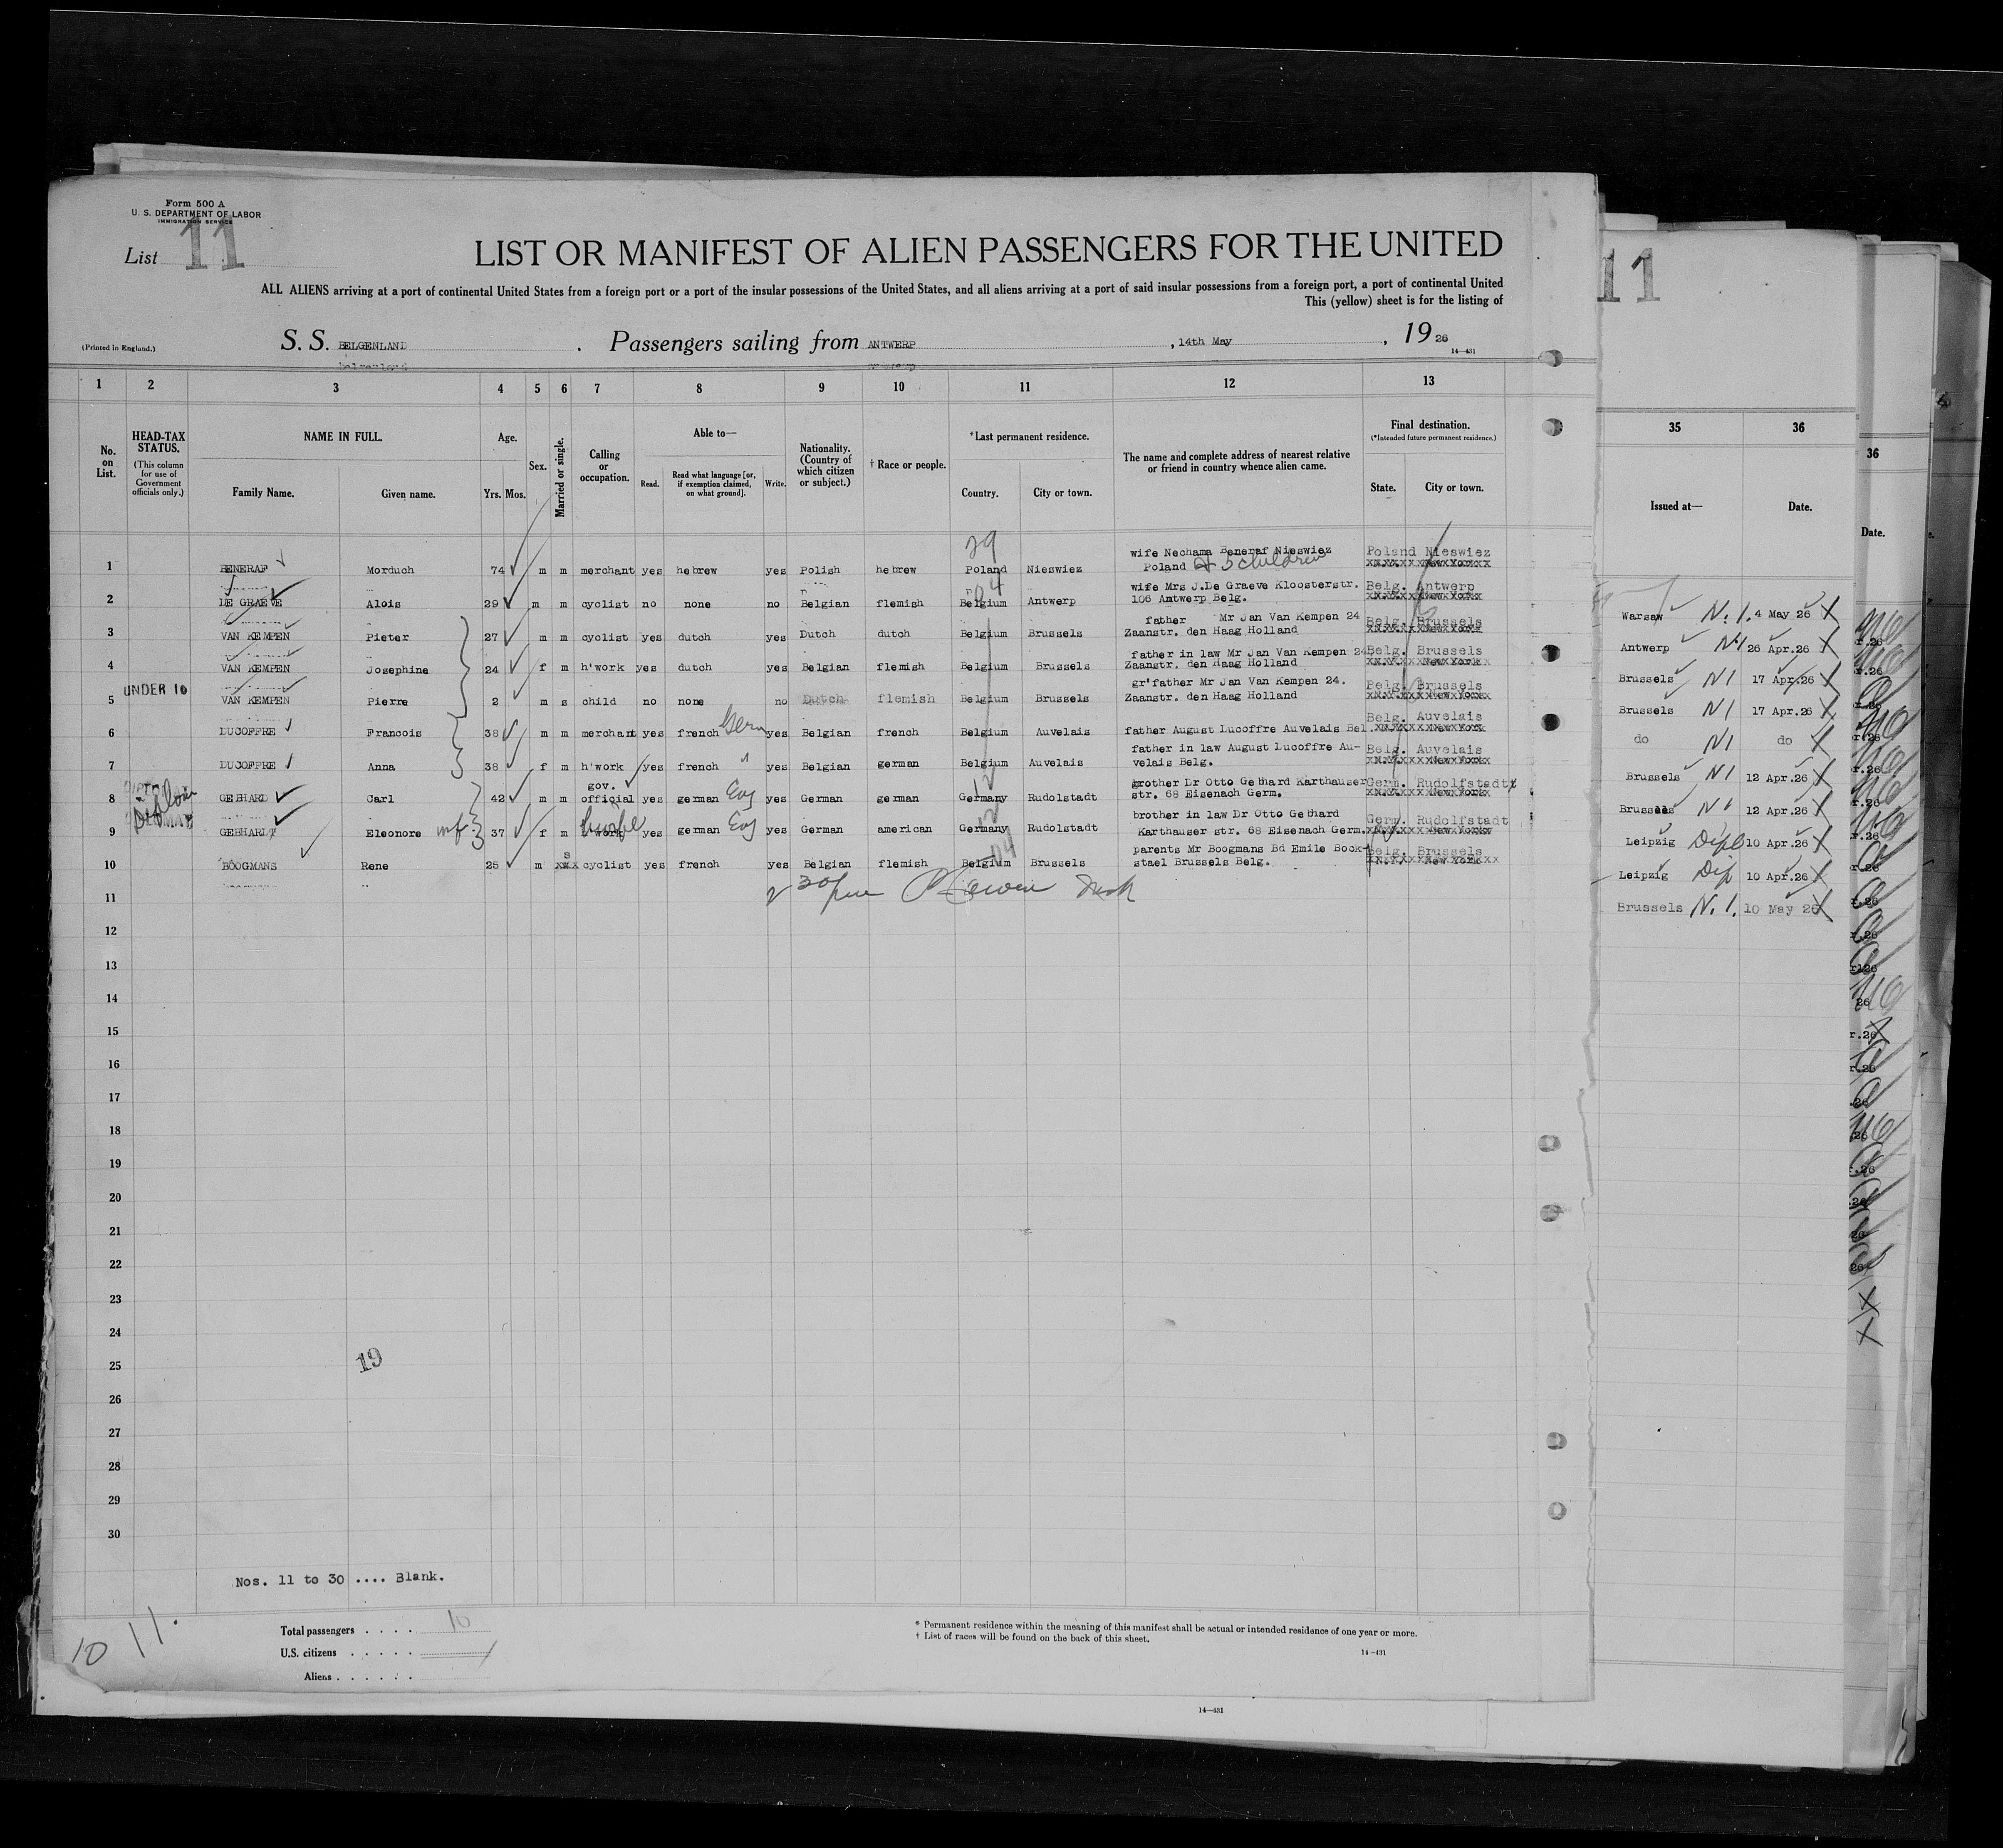 Form 500 A
U. S. DEPARTMENT OF LABOR
IMMIGRATION SERVICE
List 11
LIST OR MANIFEST OF ALIEN PASSENGERS FOR THE UNITED
ALL ALIENS arriving at a port of continental United States from a foreign port or a port of the insular possessions of the United States, and all aliens arriving at a port of said insular possessions from a foreign port, a port of continental United
This (yellow) sheet is for the listing of
(Printed in England.)
S. S. BELGENLAND . Passengers sailing from ANTWERP , 14th May , 19 26
14-431
1 2 3 4 5 6 7 8 9 10 11 12 13
No. on List.
HEAD-TAX STATUS.
(This column for use of Government officials only.)
NAME IN FULL.
Family Name. Given name.
Age.
Yrs. Mos.
Sex.
Married or single.
Calling or occupation.
Able to—
Read. Read what language [or, if exemption claimed, on what ground]. Write.
Nationality. (Country of which citizen or subject.)
† Race or people.
*Last permanent residence.
Country. City or town.
The name and complete address of nearest relative or friend in country whence alien came.
Final destination.
(*Intended future permanent residence.)
State. City or town.
29
wife Nechama Beneraf Nieswiez Poland Nieswiez
1 BENERAF Morduch 74 m m merchant yes hebrew yes Polish hebrew Poland Nieswiez Poland & 5 children
wife Mrs J.De Graeve Kloosterstr. Belg. Antwerp
2 DE GRAEVE Alois 29 m m cyclist no none no Belgian flemish Belgium Antwerp 106 Antwerp Belg.
father Mr Jan Van Kempen 24 Belg. Brussels
3 VAN KEMPEN Pieter 27 m m cyclist yes dutch yes Dutch dutch Belgium Brussels Zaanstr. den Haag Holland
father in law Mr Jan Van Kempen 24 Belg. Brussels
4 VAN KEMPEN Josephine 24 f m h'work yes dutch yes Belgian flemish Belgium Brussels Zaanstr. den Haag Holland
UNDER 16
gr'father Mr Jan Van Kempen 24. Belg. Brussels
5 VAN KEMPEN Pierre 2 m s child no none no Dutch flemish Belgium Brussels Zaanstr. den Haag Holland
Belg. Auvelais
6 DUCOFFRE Francois 38 m m merchant yes french Germ yes Belgian french Belgium Auvelais father August Lucoffre Auvelais Bel.
father in law August Lucoffre Au- Belg. Auvelais
7 DUCOFFRE Anna 38 f m h'work yes french " yes Belgian german Belgium Auvelais velais Belg.
gov. brother Dr Otto Gebhard Karthauser Germ. Rudolfstadt
8 GEBHARD Carl 42 m m official yes german Eng yes German german Germany Rudolstadt str. 68 Eisenach Germ.
brother in law Dr Otto Gebhard Germ. Rudolfstadt
9 GEBHARDT Eleonore wf 37 f m h'work yes german Eng yes German american Germany Rudolstadt Karthauser str. 68 Eisenach Germ.
parents Mr Boogmans Bd Emile Bock- Belg. Brussels
10 BOOGMANS Rene 25 m s cyclist yes french yes Belgian flemish Belgium Brussels stael Brussels Belg.
11
12
13
14
15
16
17
18
19
20
21
22
23
24
25
26
27
28
29
30
19
Nos. 11 to 30 .... Blank.
10 11.
Total passengers . . . . 10
U.S. citizens . . . . .
Aliens . . . . . .
* Permanent residence within the meaning of this manifest shall be actual or intended residence of one year or more.
† List of races will be found on the back of this sheet.
14-431
14-431
11
35 36
Issued at— Date.
Warsaw N. 1. 4 May 26
Antwerp N 1 26 Apr.26
Brussels N 1 17 Apr.26
Brussels N 1 17 Apr.26
do N 1 do
Brussels N 1 12 Apr.26
Brussels N 1 12 Apr.26
Leipzig Dipl 10 Apr.26
Leipzig Dip 10 Apr.26
Brussels N. 1. 10 May 26
36
Date.